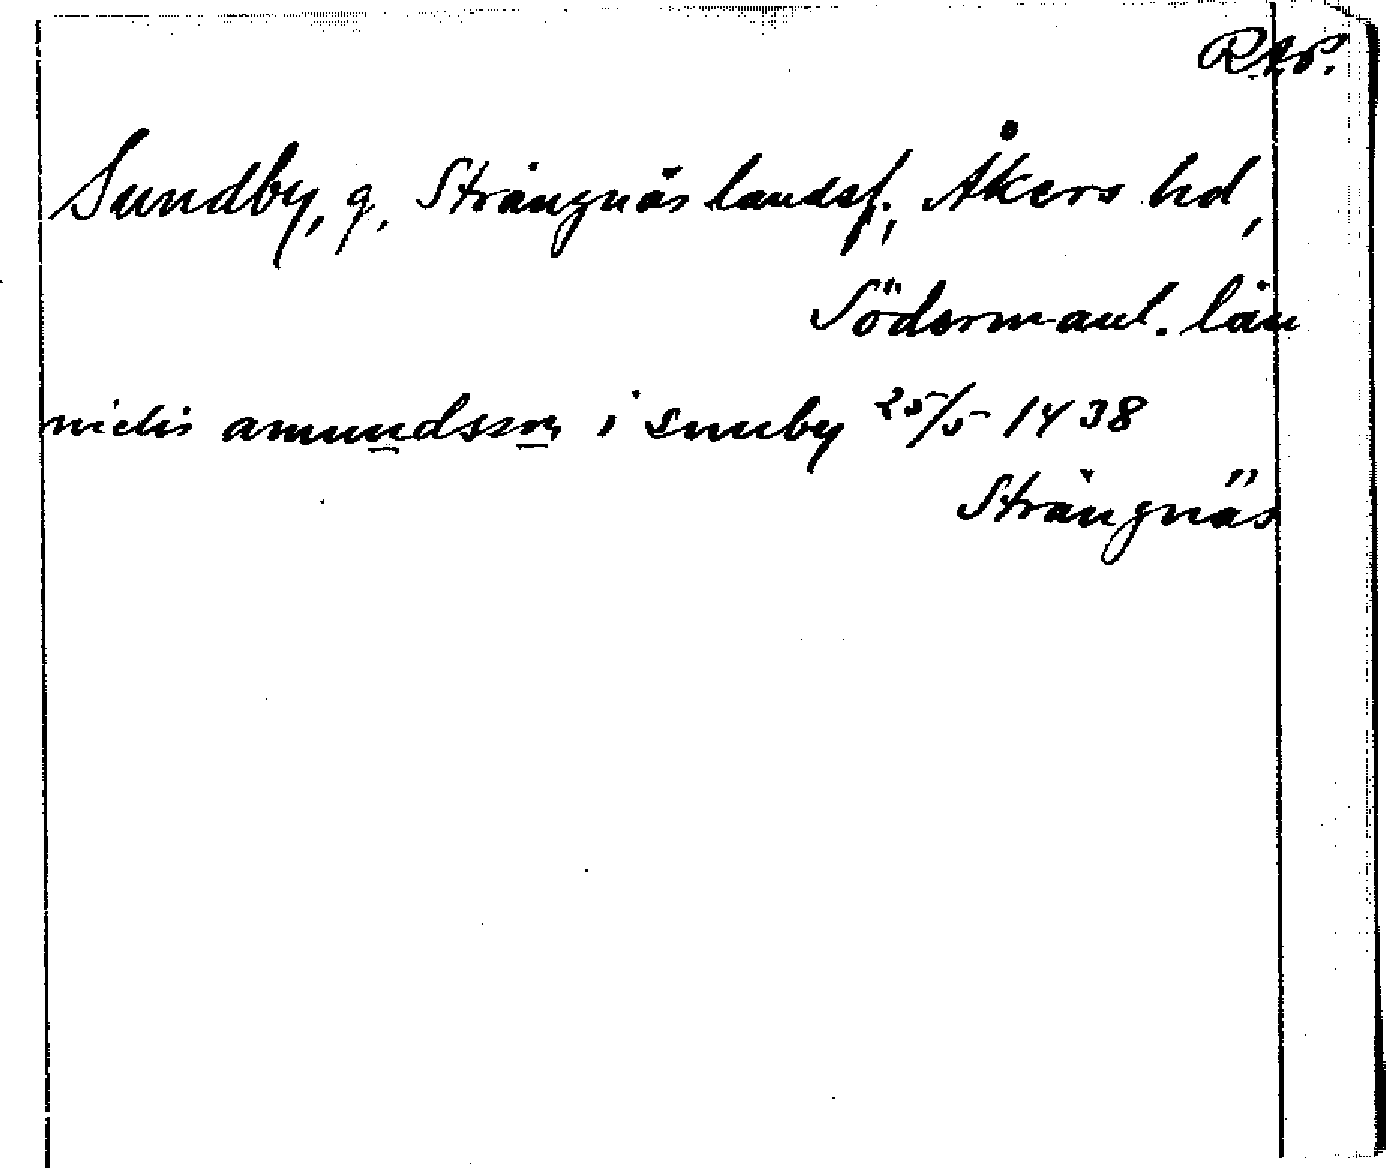 R.A.P.
Sundby, g, Strängnäs landsf., Åkers hd,
Södermanl. län
nielis amundsson i sunby 25/5 1438
Strängnäs